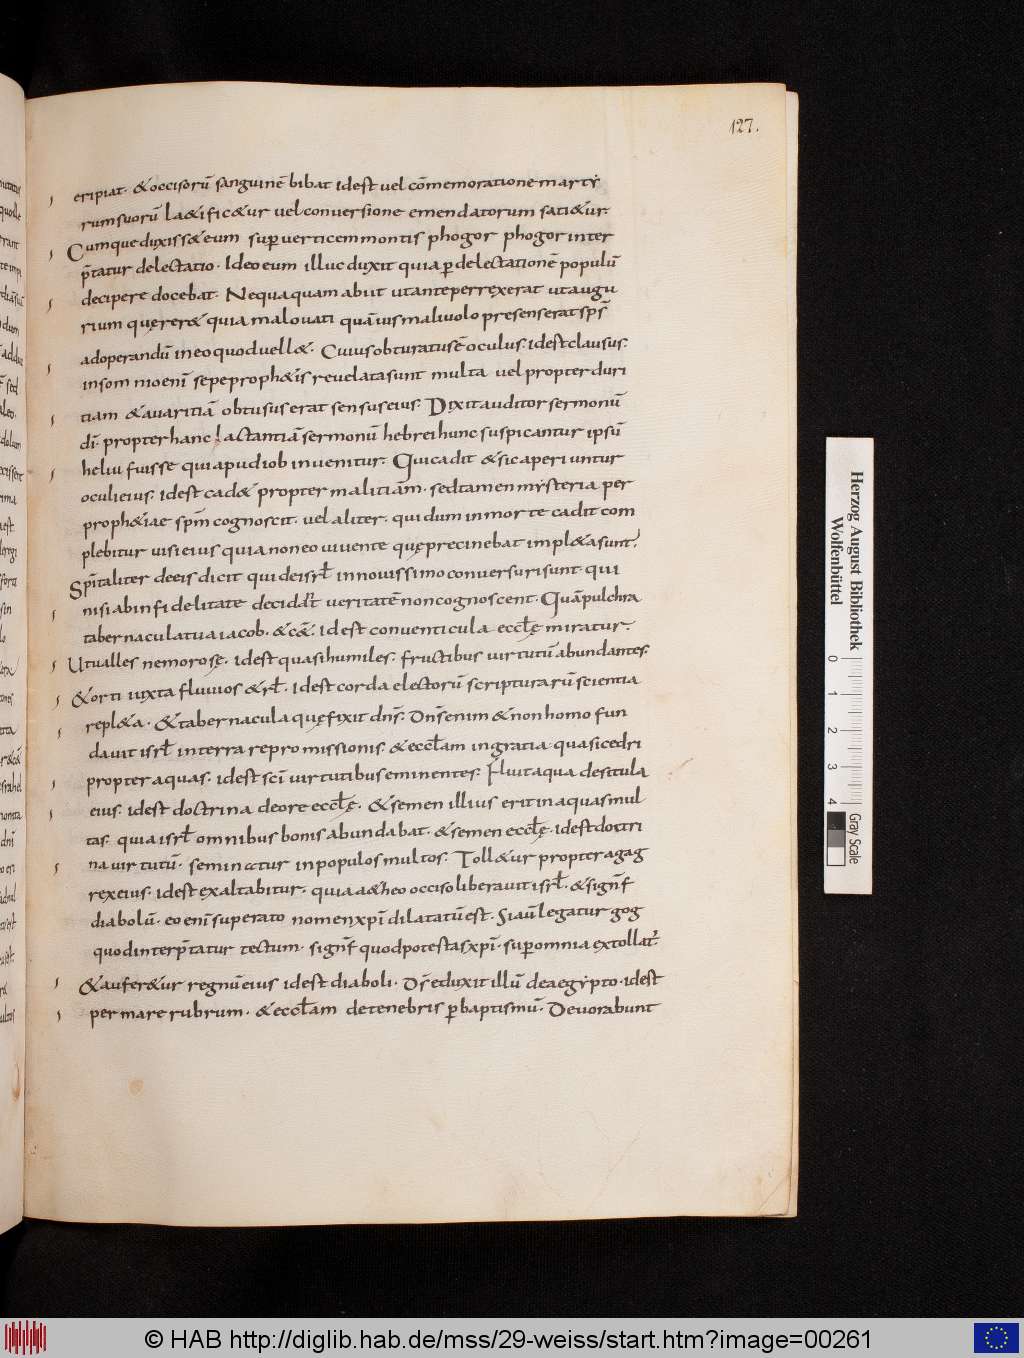 127.
eripiat· & occisorū sanguinē bibat idest vel cōmemoratione marty
rum suorū laetific&ur vel conversione emendatorum sati&ur·
Cumque duxiss& eum super verticem montis phogor phogor inter
p̄tatur delectatio· Ideo eum illuc duxit quia p delectationē populū
decipere docebat· Nequaquam abiit ut ante perrexerat ut augu
rium quęrer& quia malo vati quāvis malivolo presenserat sp̄s
ad operandū in eo quod vell&· Cuius obturatus ē oculus· idest clausus·
insomnio enī sepe proph&is revelata sunt multa vel propter duri
tiam & avaritiā obtusus erat sensus eius· Dixit auditor sermonū
dī· propter hanc lactantiā sermonū hebrei hunc suspicantur ipsū
heliu fuisse qui apud iob invenitur· Qui cadit & sic aperiuntur
oculi eius· idest cad& propter malitiām· sed tamen mysteria per
proph&iae sp̄m cognoscit· vel aliter· qui dum in morte cadit com
plebitur visi eius quia non eo vivente quę precinebat impl&a sunt·
Sp̄italiter de eis dicit qui de isrł in novissimo conversuri sunt qui
nisi ab infidelitate veritatē non cognoscent· Quā pulchra
tabernacula tua iacob· &cā· Idest conventicula eccłę miratur·
Ut valles nemorosę· idest quasi humiles· fructibus virtutū abundantes·
& orti iuxta fluvios &rł· Idest corda electorū scripturarū scientia
repl&a· & tabernacula quę fixit dn̄s· Dn̄s enim & non homo fun
davit isrł in terra repromissionis· & eccłam in gratia quasi cedri
propter aquas· idest scī virtutibus eminentes· Fluit aqua de situla
eius· idest doctrina de ore eccłę· & semen illius erit in aquas mul
tas· quia isrł omnibus bonis abundabat· & semen eccłę· idest doctri
na virtutū· seminatur in populos multos· Toll&ur propter agag
rex eius· idest exaltabitur· quia a&heo occiso liberavit isrł· & signf̄
diabolū· eo enī superato nomen xpī dilatatū est· Si aū legatur gog
quod interp̄tatur tectum· signf̄ quod potestas xpī· super omnia extollat·
& aufer&ur regnū eius idest diaboli· Ds̄ eduxit illū de aegypto· idest
per mare rubrum· & eccłam de tenebris p baptismū· Devorabunt
Herzog August Bibliothek
Wolfenbüttel
0 1 2 3 4
Gray Scale
© HAB http://diglib.hab.de/mss/29-weiss/start.htm?image=00261